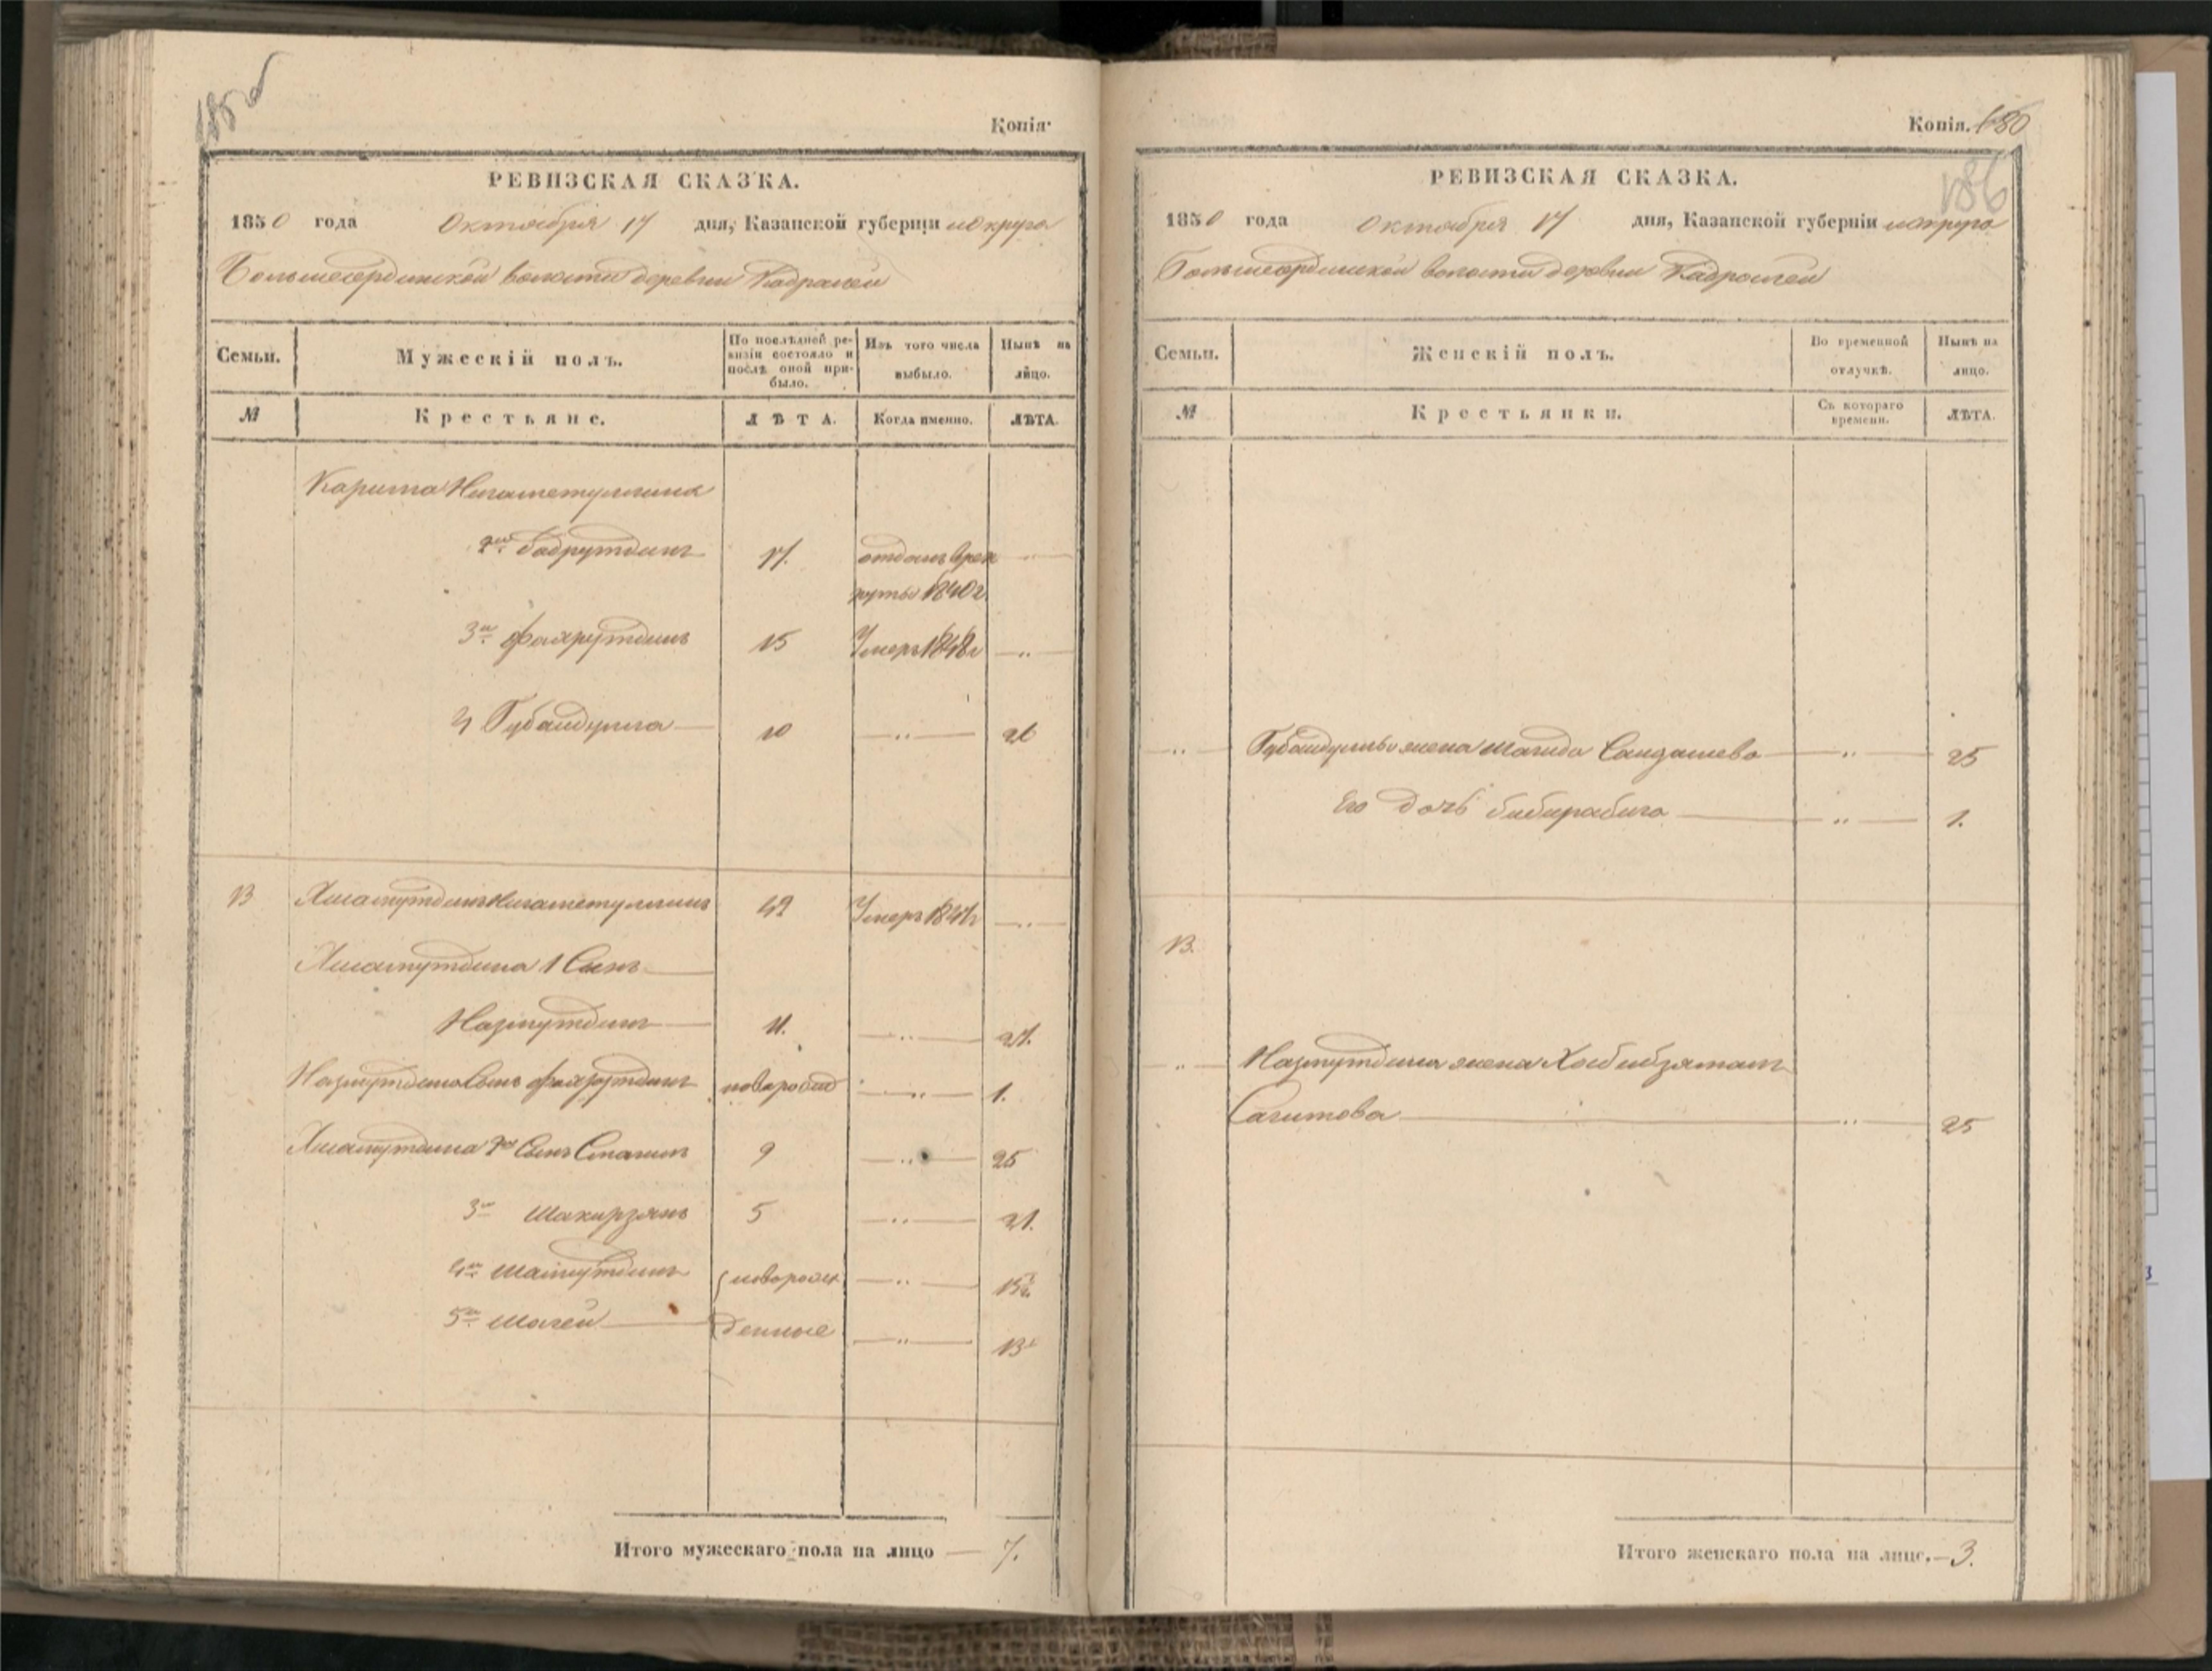 185об
Копія.
РЕВИЗСКАЯ СКАЗКА.
1850 года Октября 17 дня, Казанской губерніи и округа
Большесердинской волости деревни Кадралей
Семьи.
Мужескій полъ.
По послѣдней ревизіи состояло и послѣ оной прибыло.
Изъ того числа выбыло.
Нынѣ на лицо.
№
Крестьяне.
ЛѢТА.
Когда именно.
ЛѢТА.
Карима Нигаметуллина
2й Бадрутдинъ 17. отданъ врек
руты 1840 г.
3й Фахрутдинъ 15 Умеръ 1848 г — " —
4 Губайдулла — 10 — " — 26
13 Хисамутдинъ Нигаметуллинъ 42 Умеръ 1847 г — " —
Хисамутдина 1 Сынъ —
Назмутдинъ — 11. — " — 27.
Назмутдина Сынъ Фахрутдинъ новорожд — " — 1.
Хисамутдина 2й Сынъ 9 — " — 25
3й Шакирзянъ 5 — " — 21.
4й новорож — " — 15½
5й — денные — " — 13
Итого мужескаго пола на лицо — 7.
Копія. 180
186
РЕВИЗСКАЯ СКАЗКА.
1850 года Октября 17 дня, Казанской губерніи и округа
Большесердинской волости деревни Кадралей
Семьи.
Женскій полъ.
Во временной отлучкѣ.
Нынѣ на лицо.
№
Крестьянки.
Съ котораго времени.
ЛѢТА.
" — Губайдуллы жена Магида — " — 25
Его дочь Бибирабига — " — 1.
13.
" — Назмутдина жена Хабибзямалъ
Сагитова — " — 25
Итого женскаго пола на лицо. — 3.